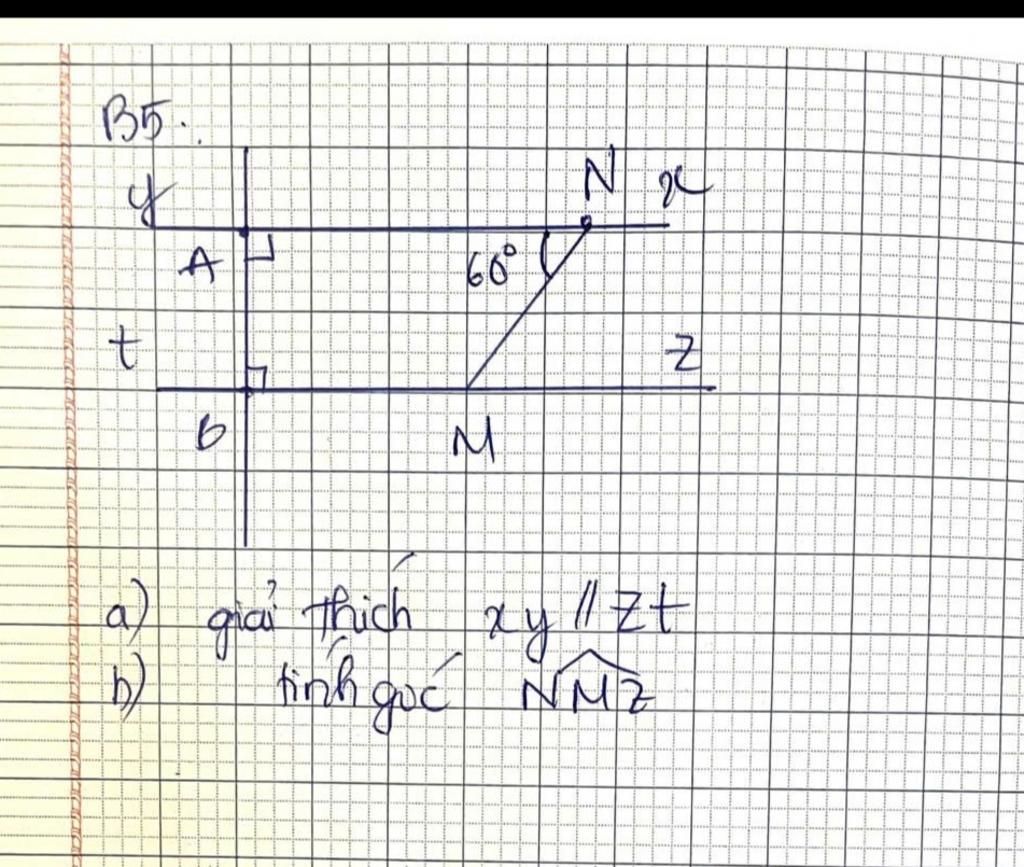 B5.
y N x
A 60°
t z
B M
a) giải thích xy // zt
b) tính góc NMz